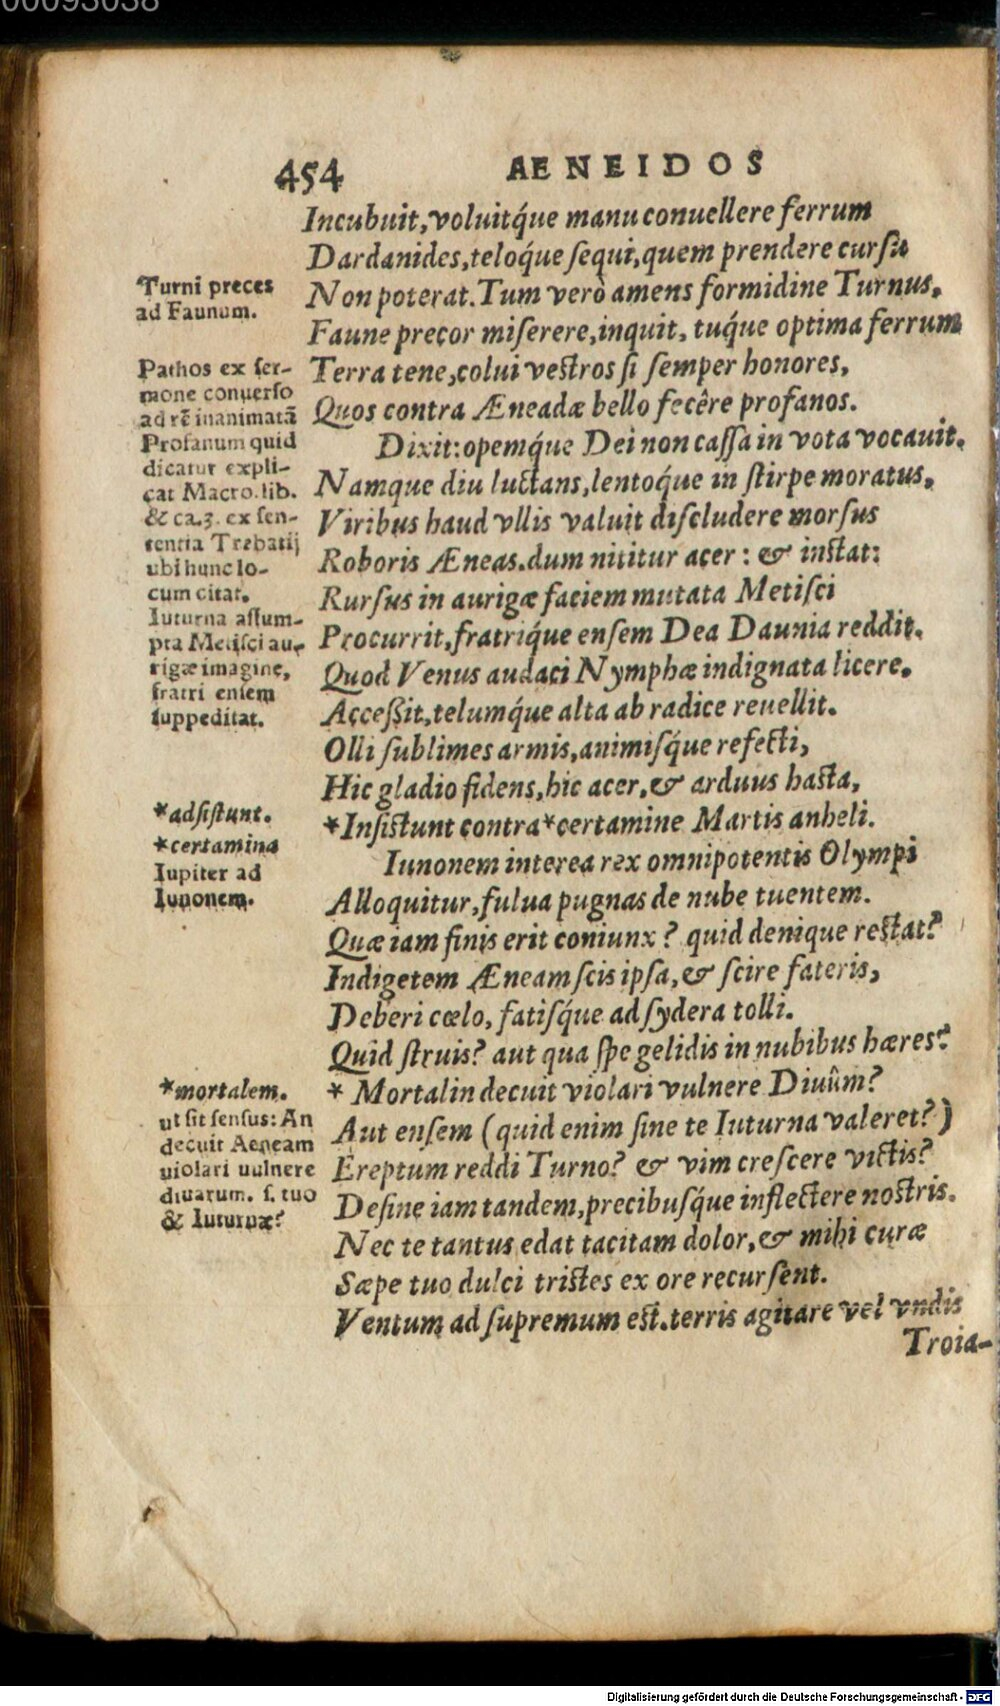 00093038
454 AENEIDOS
Incubuit, voluitq́ue manu conuellere ferrum
Dardanides, teloq́ue sequi, quem prendere cursu
Non poterat. Tum verò amens formidine Turnus,
Faune precor miserere, inquit, tuq́ue optima ferrum
Terra tene, colui vestros si semper honores,
Quos contra Æneadæ bello fecêre profanos.
Dixit: opemq́ue Dei non cassa in vota vocauit.
Namque diu luctans, lentoq́ue in stirpe moratus,
Viribus haud vllis valuit discludere morsus
Roboris Æneas. dum nititur acer: & instat:
Rursus in aurigæ faciem mutata Metisci
Procurrit, fratriq́ue ensem Dea Daunia reddit.
Quod Venus audaci Nymphæ indignata licere.
Accessit, telumq́ue alta ab radice reuellit.
Olli sublimes armis, animisq́ue refecti,
Hic gladio fidens, hic acer, & arduus hasta,
*Insistunt contra *certamine Martis anheli.
Iunonem interea rex omnipotentis Olympi
Alloquitur, fulua pugnas de nube tuentem.
Quæ iam finis erit coniunx? quid denique restat?
Indigetem Æneam scis ipsa, & scire fateris,
Deberi cœlo, fatisq́ue ad sydera tolli.
Quid struis? aut qua spe gelidis in nubibus hæres?
* Mortalin decuit violari vulnere Diuûm?
Aut ensem (quid enim sine te Iuturna valeret?)
Ereptum reddi Turno? & vim crescere victis?
Desine iam tandem, precibusq́ue inflectere nostris.
Nec te tantus edat tacitam dolor, & mihi curæ
Sæpe tuo dulci tristes ex ore recursent.
Ventum ad supremum est. terris agitare vel vndis
Troia-
Turni preces
ad Faunum.
Pathos ex ser-
mone conuerso
ad rē inanimatā
Profanum quid
dicatur expli-
cat Macro. lib.
& ca.3. ex sen-
tentia Trebatij
ubi hunc lo-
cum citat.
Iuturna assum-
pta Metisci au-
rigæ imagine,
fratri ensem
suppeditat.
*adsistunt.
*certamina
Iupiter ad
Iunonem.
*mortalem.
ut sit sensus: An
decuit Aeneam
uiolari uulnere
diuarum. s. tuo
& Iuturnæ?
Digitalisierung gefördert durch die Deutsche Forschungsgemeinschaft - DFG